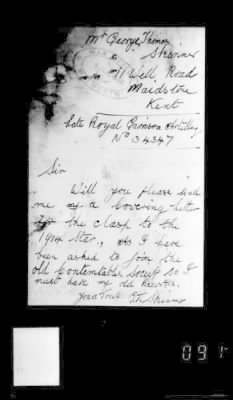 Mr George Thomas
Skinner
11 Well Road
Maidstone
Kent
Late Royal Garrison Artillery
No 34347
Sir
Will you please send
me by a Covering letter
for the clasp to the
1914 Star., as I have
been asked to join the
old Contemtable Society so I
must have my old
Yours Truly G.T. Skinner
091